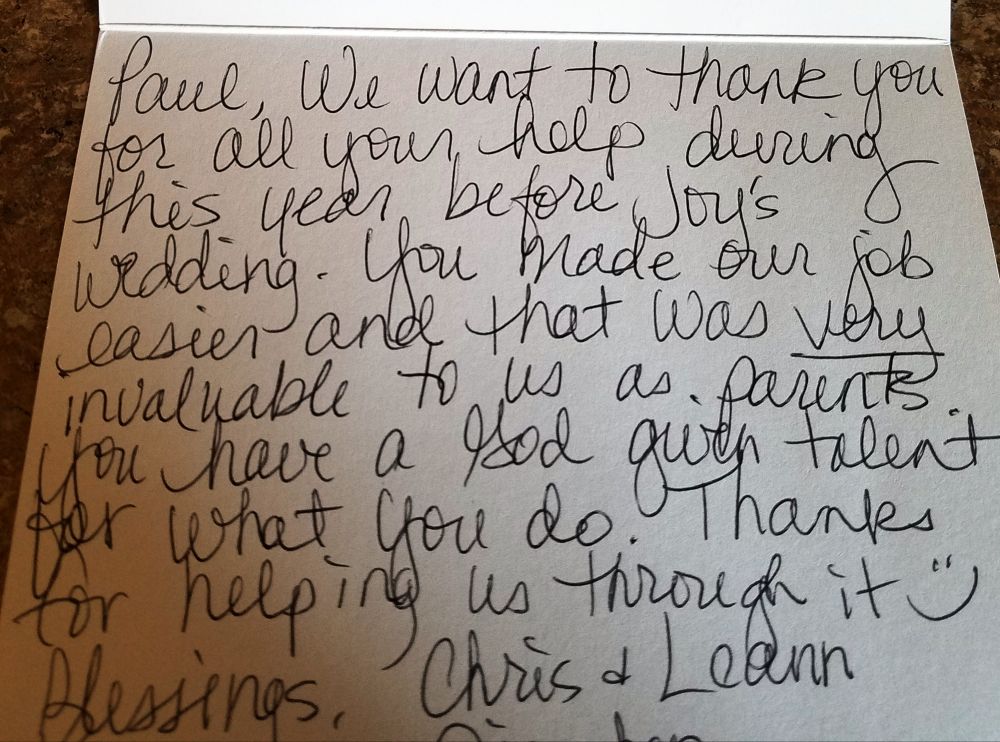 Paul, We want to thank you
for all your help during
this year before Joy's
wedding. You made our job
easier and that was very
invaluable to us as parents.
You have a God given talent
for what you do. Thanks
for helping us through it :)
Blessings, Chris & Leann